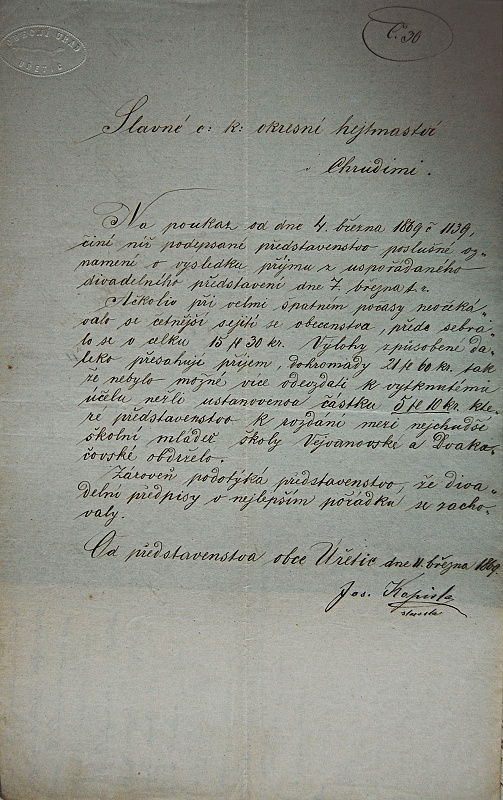 OBECNÍ ÚŘAD
ÚŘETIC
Č. 30
Slavné c: k: okresní hejtmaství
v Chrudimi.
Na poukaz od dne 4. března 1869 č 1139,
činí níž podepsané představenstvo poslušné oz-
namení o vysledku příjmu z uspořádaného
divadelního představení dne 7. března t. r.
Ačkoliv při velmi špatním počasy neočeká-
valo se četnější sejití se obecenstva, předc sebrá-
lo se v celku 15 zl 30 kr. Vylohy způsobené da-
leko přesahují příjem, dohromady 21 zl 60 kr. tak
že nebylo možné více odevzdati k vytknutému
účelu nežli ustanovenou částku 5 zl 10 kr. kte-
ré představenstvo k rozdání mezi nejchudší
školní mládež školy Vejvanovské a Dvaka-
čovské obdrželo.
Zároveň podotýká představenstvo, že diva-
delní předpisy v nejlepším pořádku se zacho-
valy.
Od představenstva obce Úřetic dne 11. března 1869.
Jos. Kapisla
starosta